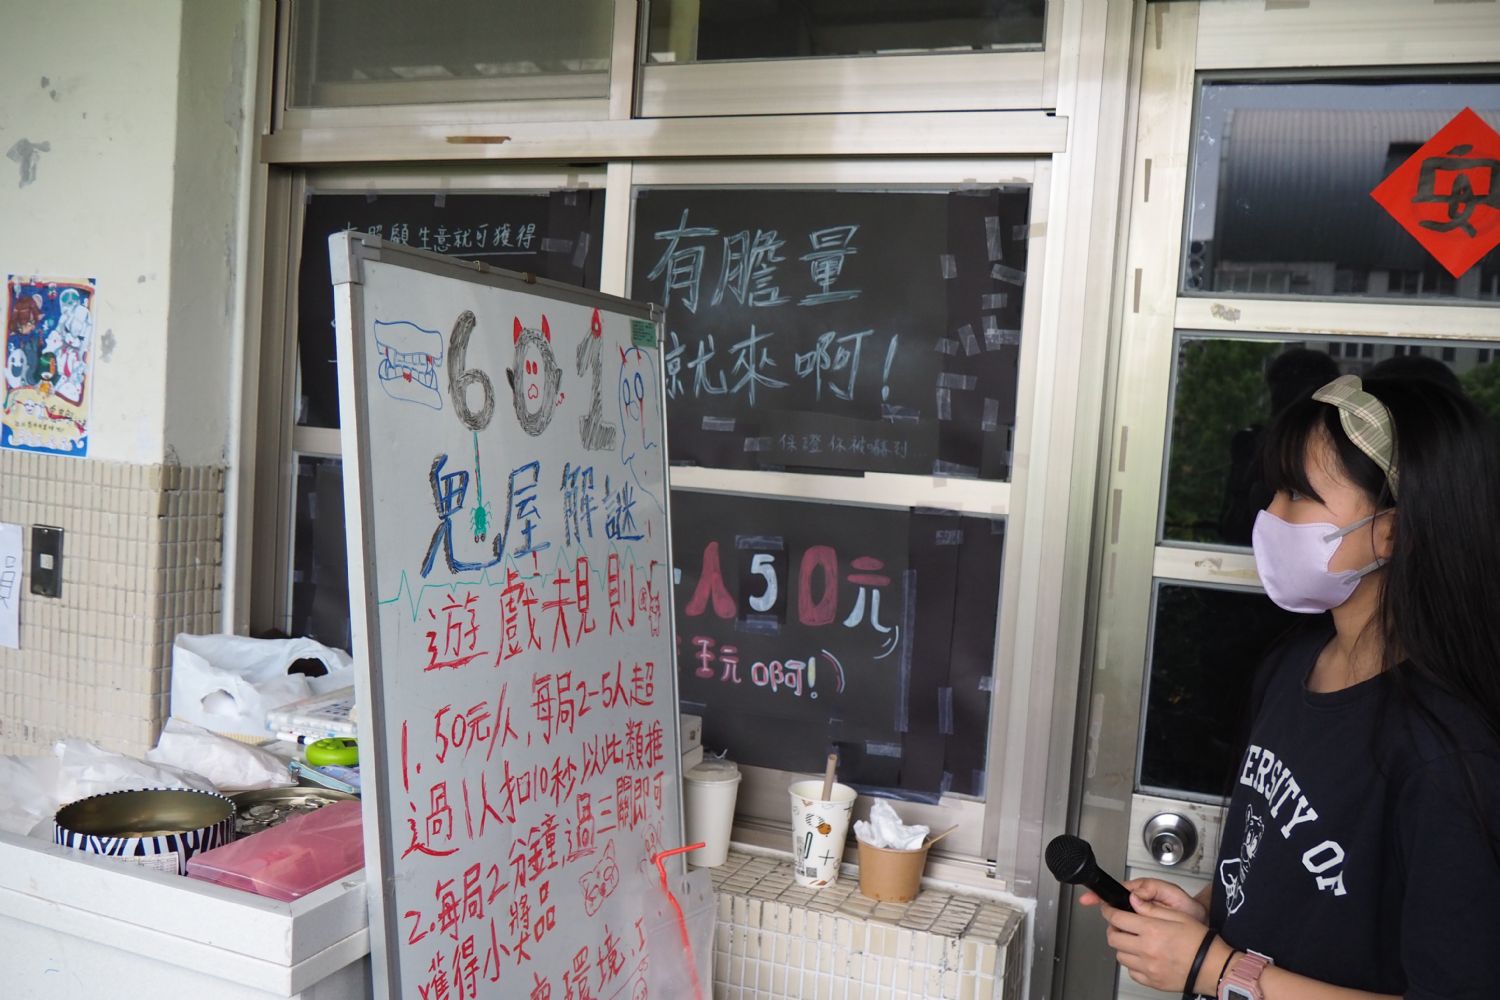 照顧生意就可獲得
有膽量
就來啊!
保證你被嚇到...
人50元
玩啊!
安
601
鬼屋解謎
遊戲規則
1. 50元/人,每局2-5人,超
過1人扣10秒以此類推
2.每局2分鐘,過三關即可
獲得小獎品
環境
ERSITY OF